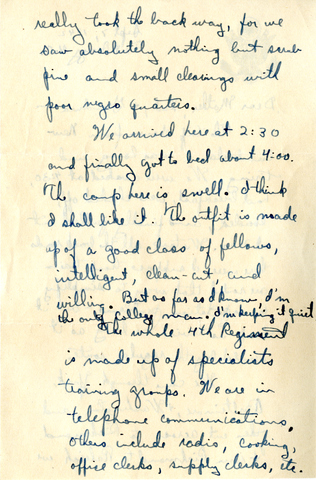 really took the back way, for we
saw absolutely nothing but scrub
pine and small clearings with
poor negro quarters.
We arrived here at 2:30
and finally got to bed about 4:00.
The camp here is swell. I think
I shall like it. The outfit is made
up of a good class of fellows,
intelligent, clean-cut, and
willing. But as far as I know, I'm
the only College man. I'm keeping it quiet
The whole 4th Regiment
is made up of specialists
training groups. We are in
telephone communications,
others include radio, cooking,
office clerks, supply clerks, etc.